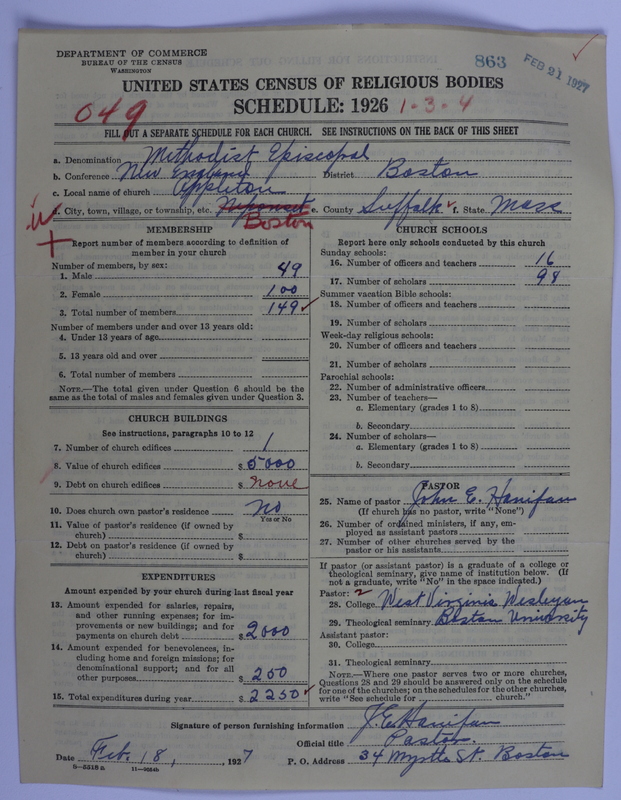 DEPARTMENT OF COMMERCE
BUREAU OF THE CENSUS
WASHINGTON
863
FEB 21 1927
UNITED STATES CENSUS OF RELIGIOUS BODIES
049
SCHEDULE: 1926 1-3-4
FILL OUT A SEPARATE SCHEDULE FOR EACH CHURCH. SEE INSTRUCTIONS ON THE BACK OF THIS SHEET
a. Denomination Methodist Episcopal
b. Conference New England District Boston
c. Local name of church Appleton
d. City, town, village, or township, etc. Neponset Boston e. County Suffolk f. State Mass
MEMBERSHIP
Report number of members according to definition of
member in your church
Number of members, by sex:
1. Male 49
2. Female 100
3. Total number of members 149
Number of members under and over 13 years old:
4. Under 13 years of age
5. 13 years old and over
6. Total number of members
NOTE.—The total given under Question 6 should be the
same as the total of males and females given under Question 3.
CHURCH BUILDINGS
See instructions, paragraphs 10 to 12
7. Number of church edifices 1
8. Value of church edifices $ 5000
9. Debt on church edifices $ none
10. Does church own pastor's residence No
Yes or No
11. Value of pastor's residence (if owned by
church) $
12. Debt on pastor's residence (if owned by
church) $
EXPENDITURES
Amount expended by your church during last fiscal year
13. Amount expended for salaries, repairs,
and other running expenses; for im-
provements or new buildings; and for
payments on church debt $ 2000
14. Amount expended for benevolences, in-
cluding home and foreign missions; for
denominational support; and for all
other purposes $ 250
15. Total expenditures during year $ 2250
CHURCH SCHOOLS
Report here only schools conducted by this church
Sunday schools:
16. Number of officers and teachers 16
17. Number of scholars 98
Summer vacation Bible schools:
18. Number of officers and teachers
19. Number of scholars
Week-day religious schools:
20. Number of officers and teachers
21. Number of scholars
Parochial schools:
22. Number of administrative officers
23. Number of teachers—
a. Elementary (grades 1 to 8)
b. Secondary
24. Number of scholars—
a. Elementary (grades 1 to 8)
b. Secondary
PASTOR
25. Name of pastor John E. Hanifan
(If church has no pastor, write "None")
26. Number of ordained ministers, if any, em-
ployed as assistant pastors
27. Number of other churches served by the
pastor or his assistants
If pastor (or assistant pastor) is a graduate of a college or
theological seminary, give name of institution below. (If
not a graduate, write "No" in the space indicated.)
Pastor: 2
28. College West Virginia Wesleyan
29. Theological seminary Boston University
Assistant pastor:
30. College
31. Theological seminary
NOTE.—Where one pastor serves two or more churches,
Questions 28 and 29 should be answered only on the schedule
for one of the churches; on the schedules for the other churches,
write "See schedule for church."
Signature of person furnishing information J. E. Hanifan
Official title Pastor.
Date Feb. 18, 1927 P. O. Address 34 Myrtle St. Boston
8-5518 a 11-9064b